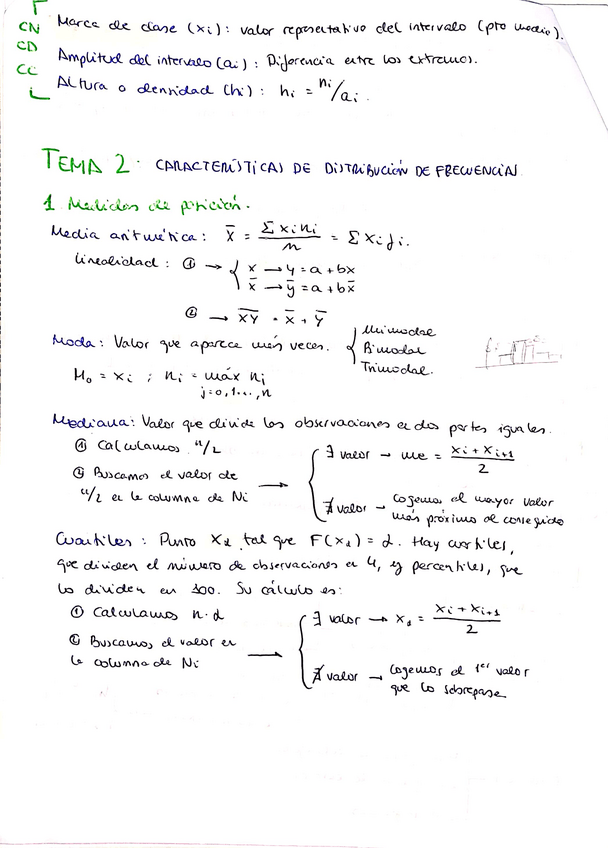 CN
CD
CC
i
Marca de clase (xi): valor representativo del intervalo (pto medio).
Amplitud del intervalo (ai): Diferencia entre los extremos.
Altura o densidad (hi): hi = ni/ai.
TEMA 2. CARACTERÍSTICAS DE DISTRIBUCIÓN DE FRECUENCIA
1 Medidas de posición.
Media aritmética: x̄ = Σxini/n = Σxifi.
Linealidad: ① → { x → y = a + bx
x̄ → ȳ = a + bx̄
② → \overline{XY} = x̄ + ȳ
Moda: Valor que aparece más veces. { Unimodal
Bimodal
Trimodal.
Mo = xi ; ni = máx nj
j=0,1...,n
Mediana: Valor que divide las observaciones en dos partes iguales.
① Calculamos n/2
② Buscamos el valor de
n/2 en la columna de Ni → { ∃ valor → me = (xi + xi+1)/2
∄ valor → Cogemos el mayor valor
más próximo al conseguido
Cuartiles: Punto xα tal que F(xα) = α. Hay cuartiles,
que dividen el número de observaciones en 4, y percentiles, que
lo dividen en 100. Su cálculo es:
① Calculamos n·α
② Buscamos el valor en
la columna de Ni → { ∃ valor → xα = (xi + xi+1)/2
∄ valor → Cogemos el 1er valor
que lo sobrepase